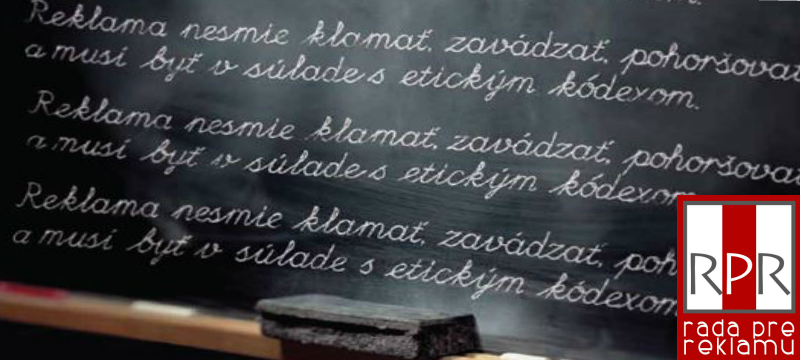 Reklama nesmie klamať, zavádzať, pohoršovať
a musí byť v súlade s etickým kódexom.
Reklama nesmie klamať, zavádzať, pohoršovať
a musí byť v súlade s etickým kódexom
Reklama nesmie klamať, zavádzať, poh
a musí byť v súlade s etickým kódexom
RPR
rada pre
reklamu